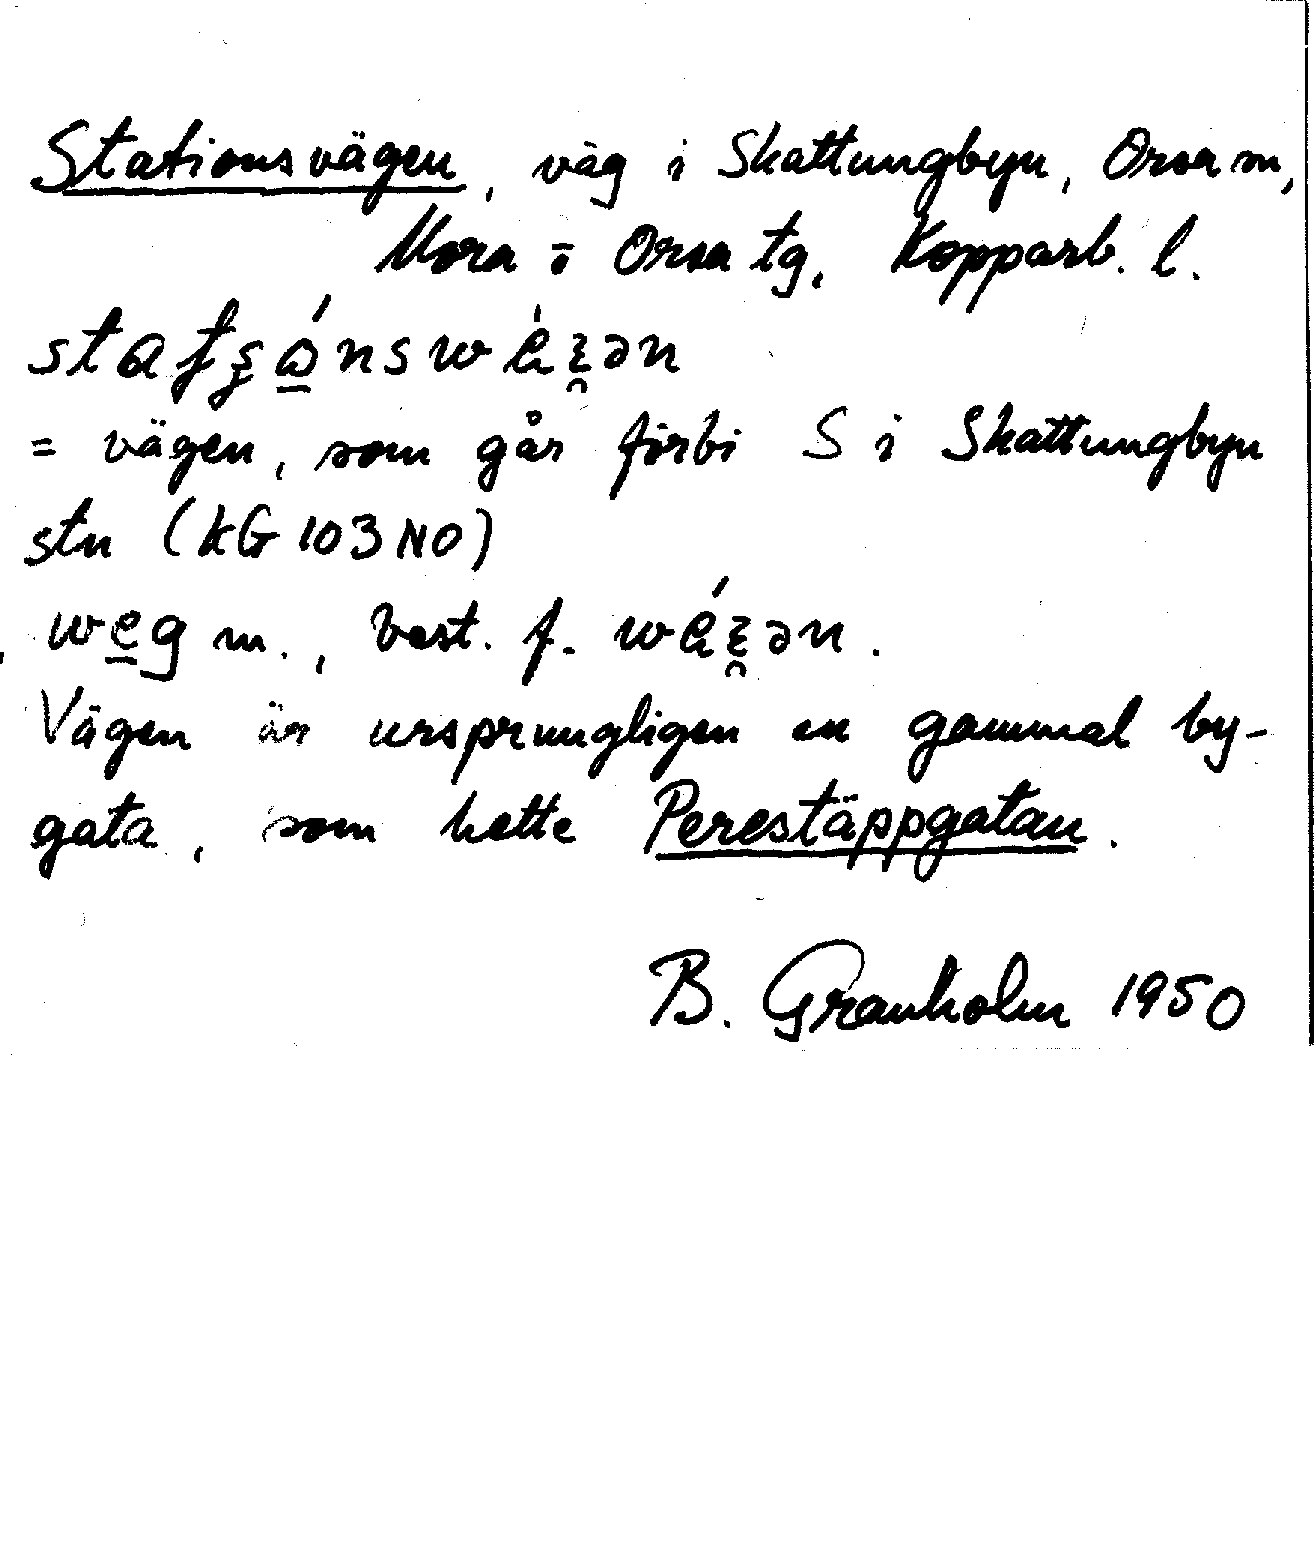 Stationsvägen, väg i Skattungbyn, Orsa sn,
Mora o Orsa tg, Kopparb. l.
= vägen, som går förbi S i Skattungbyn
stn (kG 103 NO)
weg m., best. f.
Vägen är ursprungligen en gammal by-
gata, som hette Perestäppgatan.
B. Granholm 1950